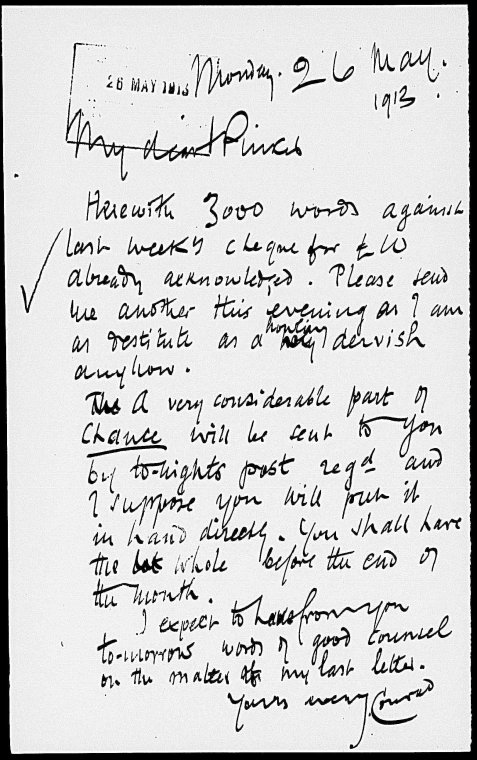 26 MAY 1913
Monday. 26 May.
1913.
My dear Pinker
Herewith 3000 words against
last week's cheque for £10
already acknowledged. Please send
me another this evening as I am
as destitute as a howling dervish
anyhow.
The A very considerable part of
Chance will be sent to you
by to-nights post regd and
I suppose you will put it
in hand directly. You shall have
the whole before the end of
the month.
I expect to have from you
to-morrow words of good counsel
on the matter of my last letter.
Yours
J. Conrad